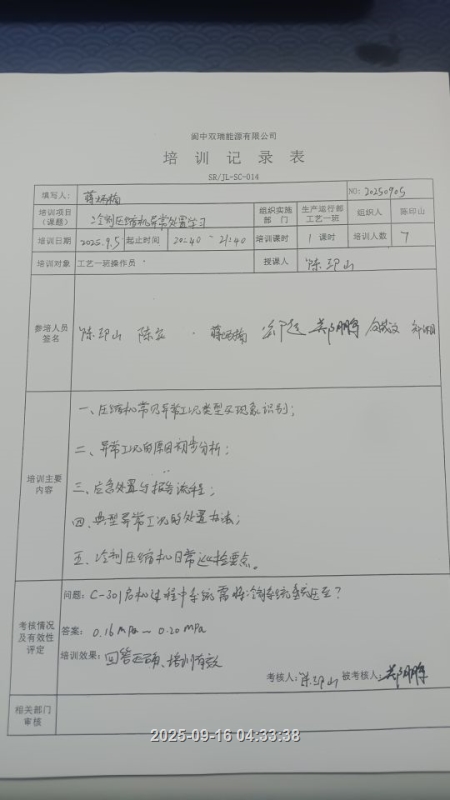 阆中双瑞能源有限公司
培训记录表
SR/JL-SC-014
填写人: NO: 20250905
培训项目(课题) 冷剂压缩机异常处置学习 组织实施部门 生产运行部工艺一班 组织人 陈印山
培训日期 2025.9.5 起止时间 20:40 ~ 21:40 培训课时 1 课时 培训人数 7
培训对象 工艺一班操作员 授课人 陈印山
参培人员签名 陈印山
培训主要内容
一、压缩机常见异常工况类型及现象识别;
二、异常工况的原因初步分析;
三、应急处置与报告流程;
四、典型异常工况的处置办法;
五、冷剂压缩机日常巡检要点。
考核情况及有效性评定
问题: C-301启机过程中系统需将冷剂系统
答案: 0.16MPa ~ 0.20MPa
培训效果: 回答正确、培训有效
考核人: 陈印山 被考核人:
相关部门审核
2025-09-16 04:33:38